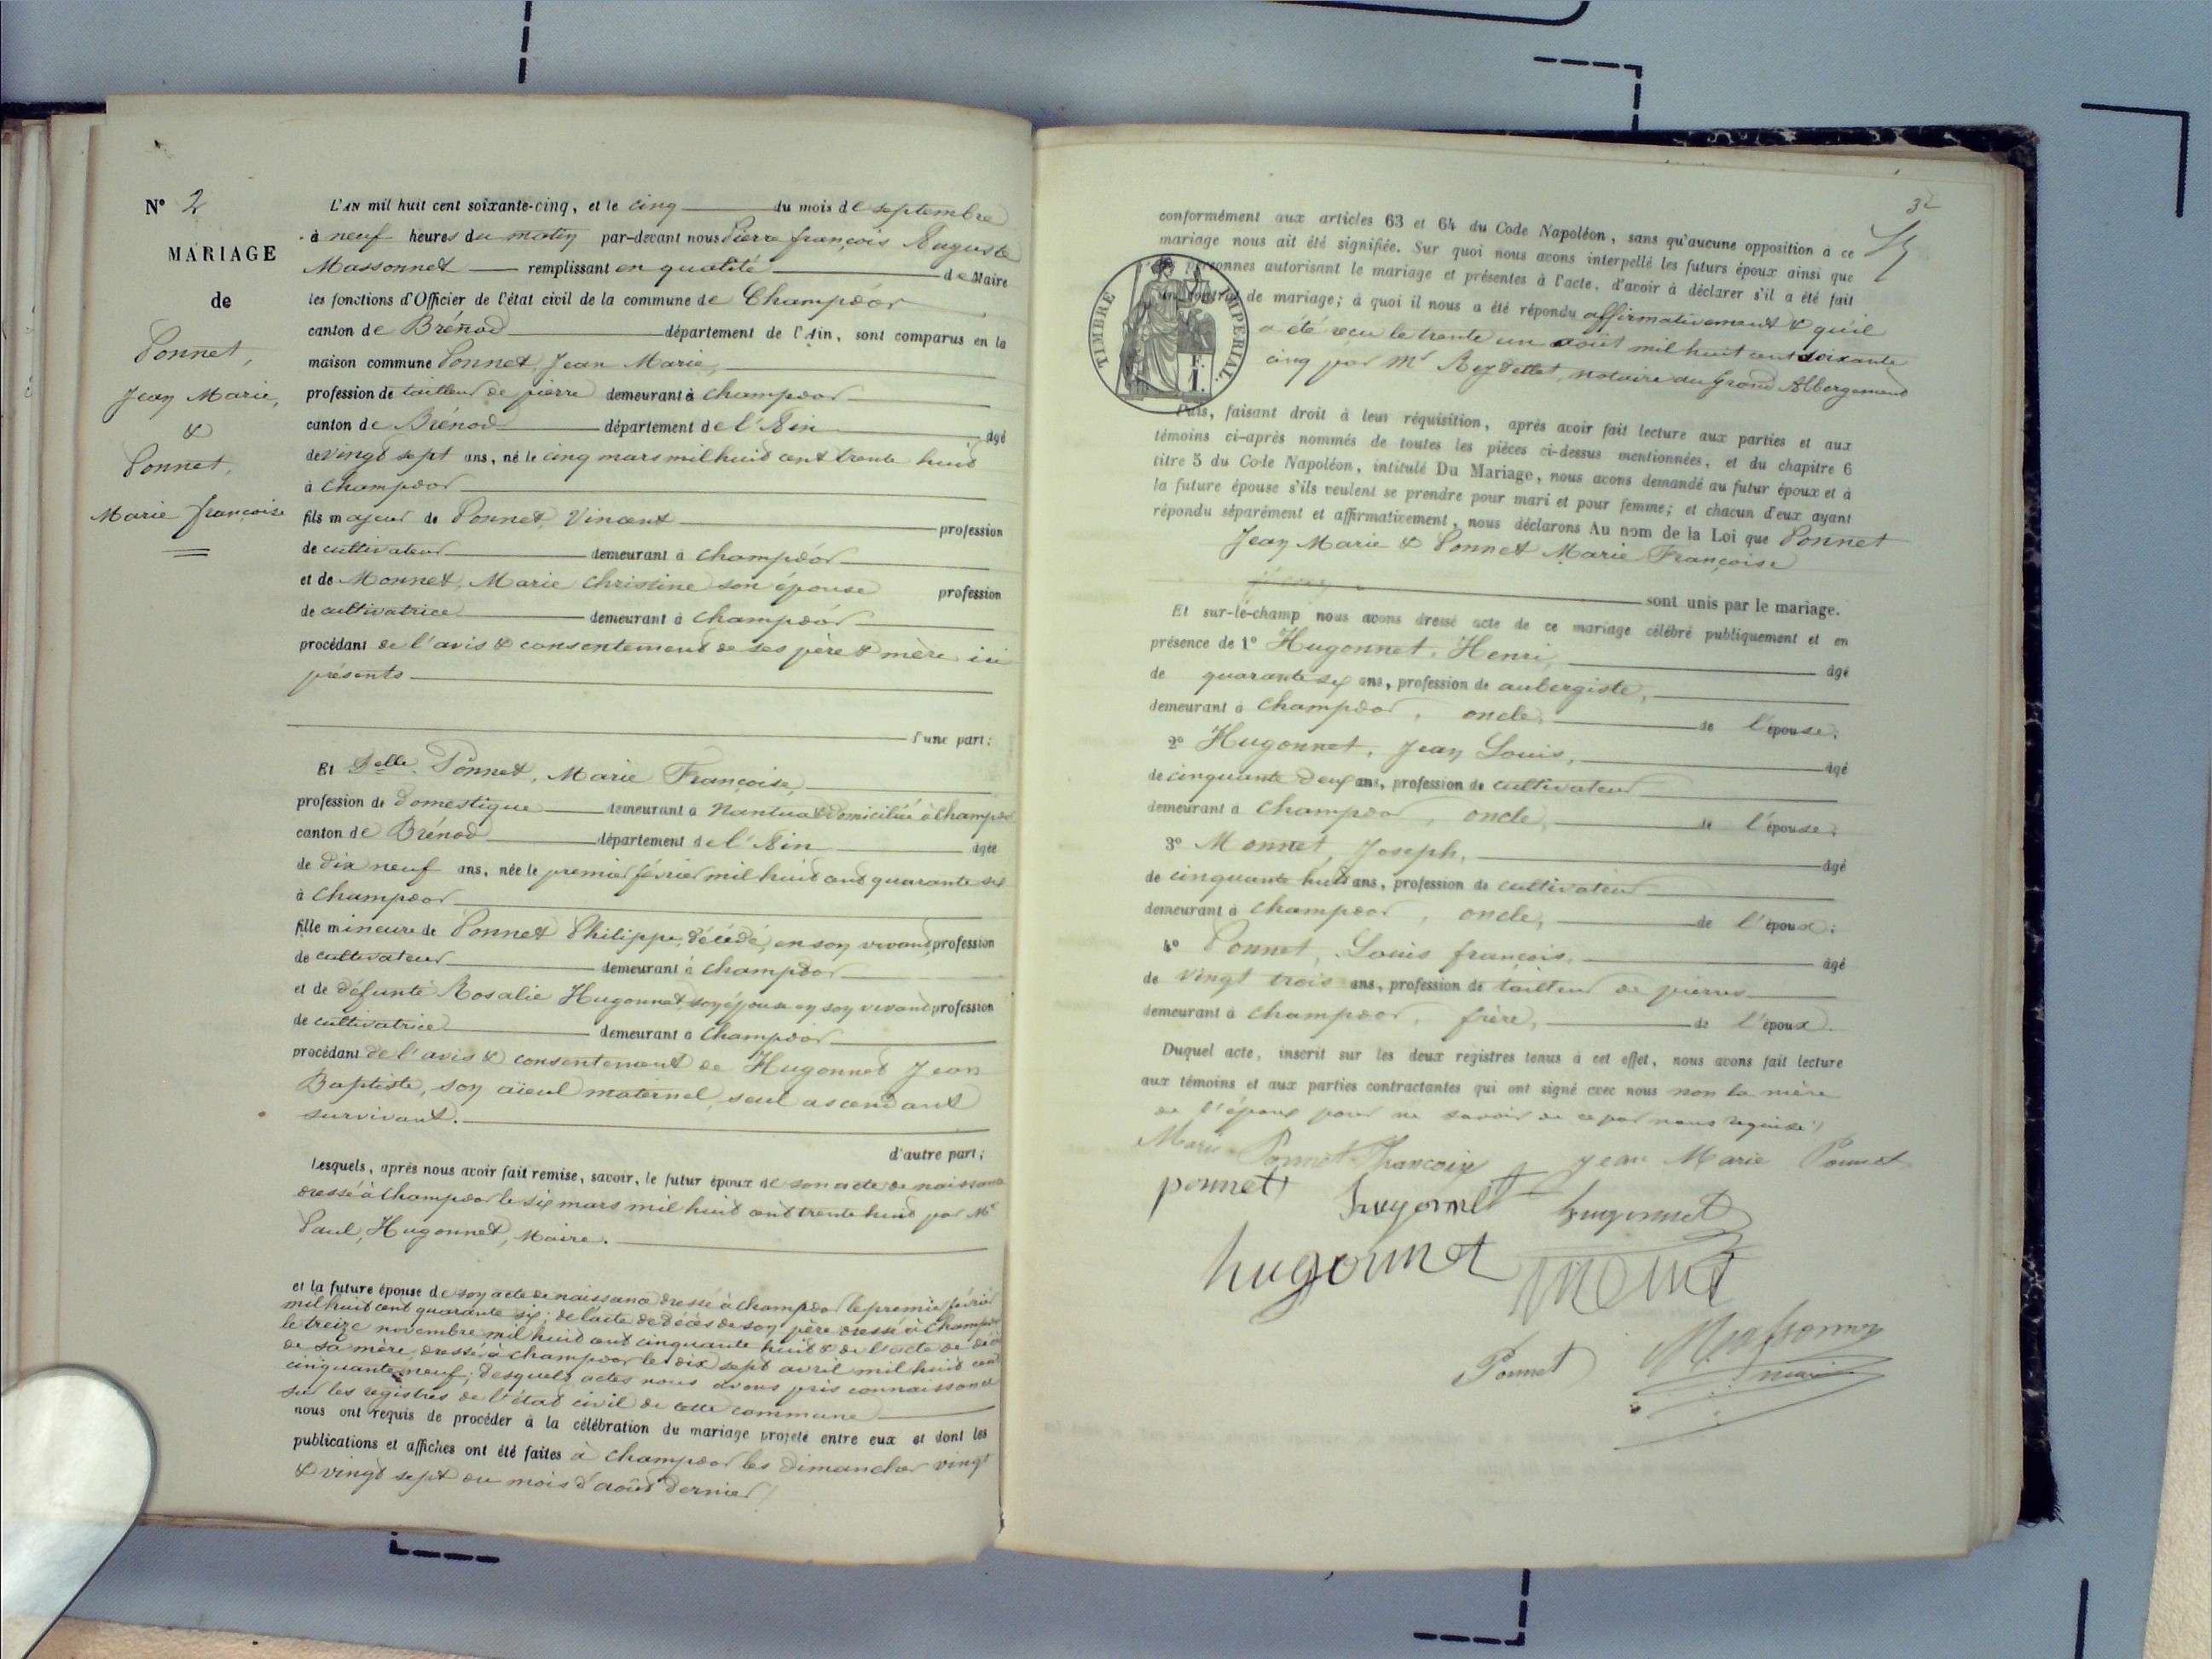 N° 2
MARIAGE
de
Ponnet,
Jean Marie,
&
Ponnet,
Marie françoise
L'AN mil huit cent soixante-cinq, et le cinq du mois de septembre
à neuf heures du matin par-devant nous Pierre françois Auguste
Massonnet remplissant en qualité de Maire
les fonctions d'Officier de l'état civil de la commune de Champdor
canton de Brénod département de l'Ain, sont comparus en la
maison commune Ponnet, Jean Marie,
profession de tailleur de pierre demeurant à champdor
canton de Brénod département de l'Ain âgé
de vingt sept ans, né le cinq mars mil huit cent trente huit
à champdor
fils majeur de Ponnet, Vincent profession
de cultivateur demeurant à champdor
et de Monnet, Marie Christine son épouse profession
de cultivatrice demeurant à champdor
procédant de l'avis & consentement de ses père & mère ici
présents
d'une part;
Et Delle Ponnet, Marie Françoise,
profession de domestique demeurant à Nantua & domiciliée à Champdor
canton de Brénod département de l'Ain âgée
de dix neuf ans, née le premier février mil huit cent quarante six
à champdor
fille mineure de Ponnet Philippe, décédé, en son vivant profession
de cultivateur demeurant à champdor
et de défunte Rosalie Hugonnet, son épouse en son vivant profession
de cultivatrice demeurant à champdor
procédant de l'avis & consentement de Hugonnet Jean
Baptiste, son aïeul maternel, seul ascendant
survivant.
d'autre part;
Lesquels, après nous avoir fait remise, savoir, le futur époux de son acte de naissance
dressé à champdor le six mars mil huit cent trente huit par Mr
Paul, Hugonnet, Maire.
et la future épouse de son acte de naissance dressé à champdor le premier février
mil huit cent quarante six; de l'acte de décès de son père dressé à champdor
le treize novembre mil huit cent cinquante huit & de l'acte de décès
de sa mère, dressé à champdor le dix sept avril mil huit cent
cinquante neuf; desquels actes nous avons pris connaissance
sur les registres de l'état civil de cette commune
nous ont requis de procéder à la célébration du mariage projeté entre eux et dont les
publications et affiches ont été faites à champdor les dimanches vingt
& vingt sept du mois d'août dernier
32
conformément aux articles 63 et 64 du Code Napoléon, sans qu'aucune opposition à ce
mariage nous ait été signifiée. Sur quoi nous avons interpellé les futurs époux ainsi que
les personnes autorisant le mariage et présentes à l'acte, d'avoir à déclarer s'il a été fait
un contrat de mariage; à quoi il nous a été répondu affirmativement & qu'il
a été reçu le trente un août mil huit cent soixante
cinq par Mr Reydellet, notaire au Grand Abbergement
TIMBRE IMPERIAL
F.
1.
Puis, faisant droit à leur réquisition, après avoir fait lecture aux parties et aux
témoins ci-après nommés de toutes les pièces ci-dessus mentionnées, et du chapitre 6
titre 5 du Code Napoléon, intitulé Du Mariage, nous avons demandé au futur époux et à
la future épouse s'ils veulent se prendre pour mari et pour femme; et chacun d'eux ayant
répondu séparément et affirmativement, nous déclarons Au nom de la Loi que Ponnet
Jean Marie & Ponnet Marie Françoise
sont unis par le mariage.
Et sur-le-champ nous avons dressé acte de ce mariage célébré publiquement et en
présence de 1° Hugonnet, Henri, âgé
de quarante six ans, profession de aubergiste,
demeurant à champdor, oncle, de l'épouse;
2° Hugonnet, Jean Louis, âgé
de cinquante deux ans, profession de cultivateur
demeurant à champdor, oncle, de l'épouse;
3° Monnet, Joseph, âgé
de cinquante huit ans, profession de cultivateur
demeurant à champdor, oncle, de l'époux;
4° Ponnet, Louis françois, âgé
de vingt trois ans, profession de tailleur de pierres
demeurant à champdor, frère, de l'époux.
Duquel acte, inscrit sur les deux registres tenus à cet effet, nous avons fait lecture
aux témoins et aux parties contractantes qui ont signé avec nous non la mère
de l'époux pour ne savoir de ce par nous requise
Marie Ponnet Francoise Jean Marie Ponnet
ponnet hugonnet hugonnet
hugonnet monet
Ponnet Massonnet
maire